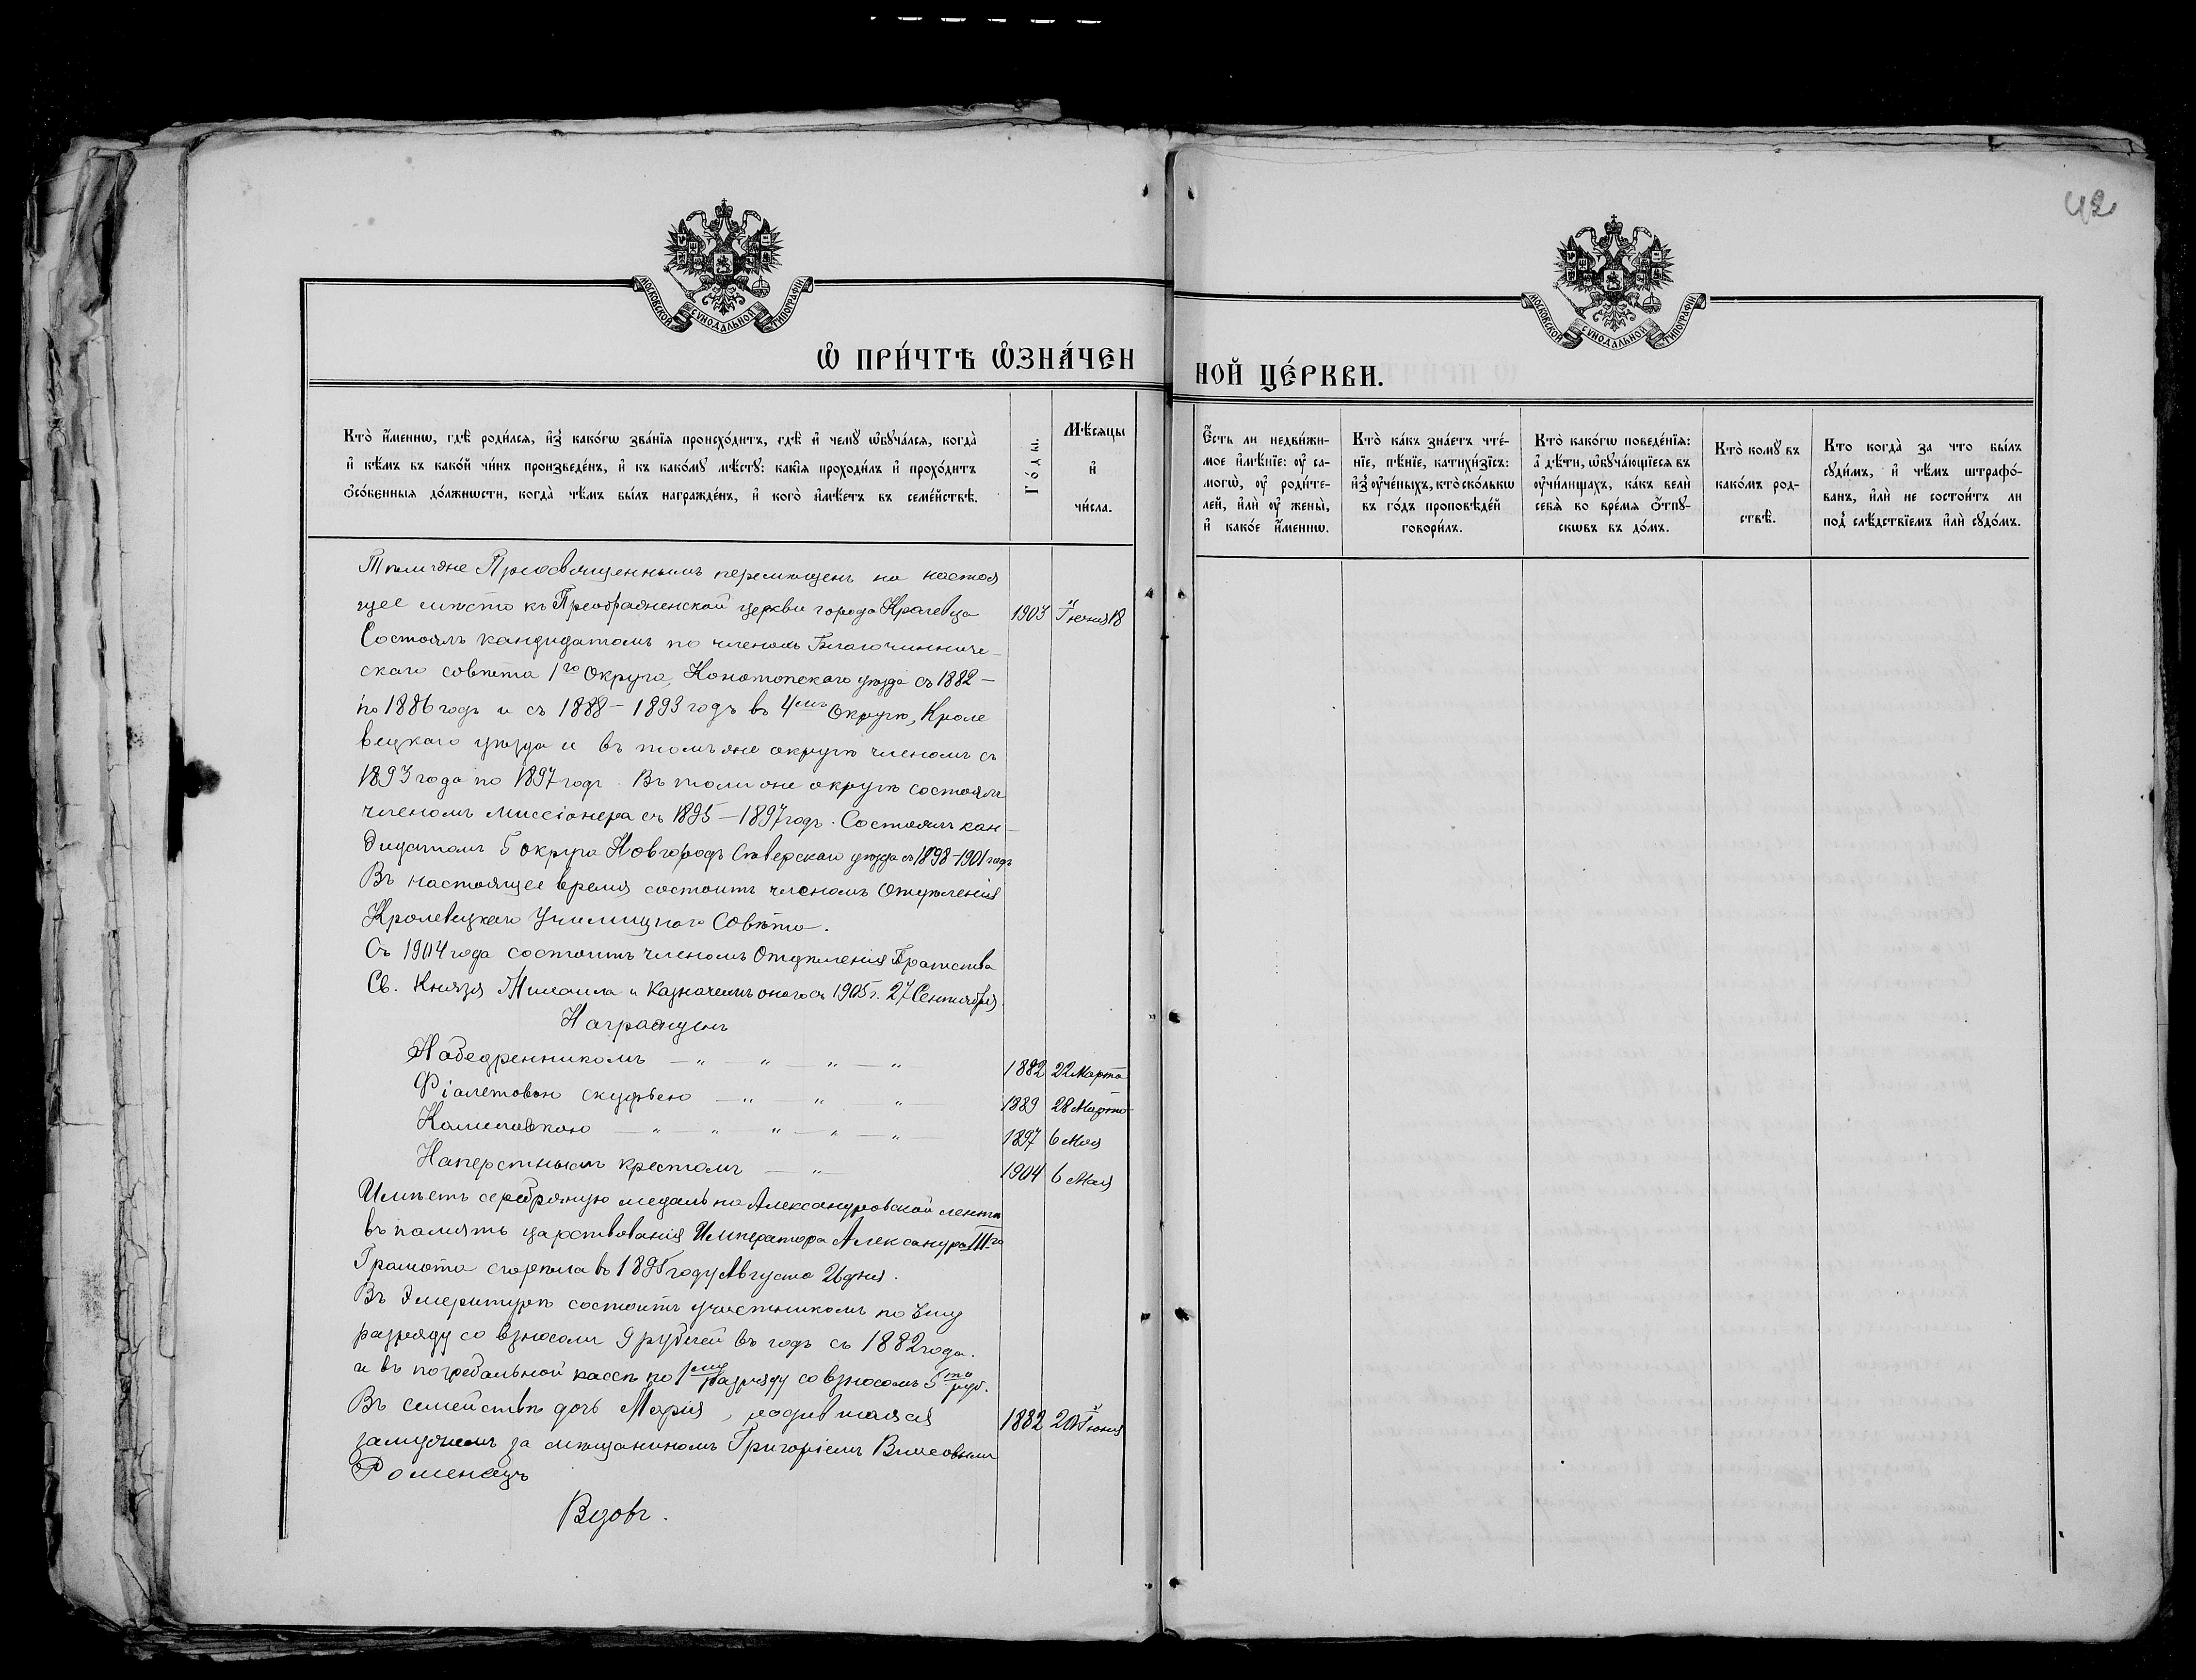 42
МОСКОВСКОЙ СУНОДАЛЬНОЙ ТИПОГРАФІИ
МОСКОВСКОЙ СУНОДАЛЬНОЙ ТИПОГРАФІИ
Ѡ҆ ПРИ́ЧТѢ Ѡ҆ЗНА́ЧЕН
НОЙ ЦЕ́РКВИ.
Кто̀ и҆́меннѡ, гдѣ̀ роди́лсѧ, и҆з̾ како́гѡ зва́нїѧ происхо́дитъ, гдѣ̀ и҆ чемꙋ̀ ѡ҆бꙋча́лсѧ, когда̀
и҆ кѣ́мъ въ како́й чи́нъ произведе́нъ, и҆ къ како́мꙋ мѣ́стꙋ: какі̑ѧ проходи́лъ и҆ прохо́дитъ
ѻ҆со́бенныѧ до́лжнѡсти, когда̀ чѣ́мъ бы́лъ награжде́нъ, и҆ кого̀ и҆мѣ́етъ въ семе́йствѣ.
Го́ды.
Мѣ́сѧцы
и҆
чи́сла.
Є҆́сть ли недви́жи-
мое и҆мѣ́нїе: ᲂу҆ са-
могѡ̀, ᲂу҆ роди́те-
лей, и҆лѝ ᲂу҆ жены̀,
и҆ како́е и҆́меннѡ.
Кто̀ ка́къ зна́етъ чте́-
нїе, пѣ́нїе, катихи́зїсъ:
и҆з̾ ᲂу҆че́ныхъ, кто̀ ско́лькѡ
въ го́дъ проповѣ́дей
говори́лъ.
Кто̀ како́гѡ поведе́нїѧ:
а҆ дѣ́ти, ѡ҆бꙋча́ющїесѧ въ
ᲂу҆чи́лищахъ, ка́къ велѝ
себѧ̀ во вре́мѧ ѻ҆́тпꙋ-
скѡвъ въ до́мъ.
Кто̀ комꙋ̀ въ
како́мъ род-
ствѣ̀.
Кто когда̀ за что бы́лъ
сꙋди́мъ, и҆ чѣ́мъ штрафо́-
ванъ, и҆лѝ не состои́тъ ли
под̾ слѣ́дствїемъ и҆лѝ сꙋдо́мъ.
Преосвященнымъ перемѣщенъ на настоя
щее мѣсто къ Преображенской церкви города Кролевца 1903 Іюня 18
Состоялъ кандидатомъ по членомъ Благочинниче-
скаго совѣта 1го Округа, Конотопскаго уѣзда съ 1882 –
по 1886 годъ и съ 1888 – 1893 годъ въ 4мъ Округѣ, Кроле
вецкаго уѣзда и въ томъ же округѣ членомъ съ
1893 года по 1897 годъ. Въ томъ же округѣ состоялъ
членомъ Миссіонера съ 1895 – 1897 годъ. Состоялъ кан-
дидатомъ 5 округа Новгородъ Сѣверскаго уѣзда съ 1898-1901 годъ
Въ настоящее время состоитъ членомъ Отдѣленія
Кролевецкаго Училищнаго Совѣта.
Съ 1904 года состоитъ членомъ Отдѣленія Братства
Св. Князя Михаила и Казначеемъ онаго съ 1905 г. 27 Сентября
Награжденъ
Набедренникомъ — „ — „ — „ — „ 1882 22 Марта
Фіалетовою скуфьею — „ — „ — „ — 1889 28 Марта
Камилавкою — „ — „ — „ — „ — „ — 1897 6 Мая
Наперстнымъ крестомъ — „ — 1904 6 Мая
Имѣетъ серебряную медаль на Александровской лентѣ
въ память царствованія Императора Александра IIIго
Грамота сгорѣла въ 1895 году Августа 26 дня.
Въ Эмеритурѣ состоитъ участникомъ по
разряду со взносомъ 9 рублей въ годъ съ 1882 года.
и въ погребальной кассѣ по 1му разряду со взносомъ 5ти руб.
Въ семействѣ дочь Марія, родившаяся 1882 20 Іюня
замужемъ за мѣщаниномъ Григоріемъ Власовымъ
Роменецъ
Вдовъ.